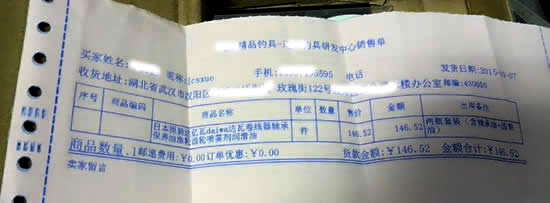 精品钓具- 钓具研发中心销售单
买家姓名: 昵称: csxue 手机: 5595 电话 发货日期:2015- -07
收货地址:湖北省武汉市汉阳区 玫瑰街122号 楼办公室 邮编:430050
序号 商品编码 商品名称 单位 数量 售价 金额 出库备注
日本原装 亿瓦daiwa达瓦卷线器轴承保养油 轮喷雾剂润滑油 件 146.52 146.52 两瓶装(含轴承油+齿轮油)
商品数量:1 邮递费用:¥0.00 订单优惠:¥0.00 货款金额:¥146.52 金额合计:¥146.52
卖家留言